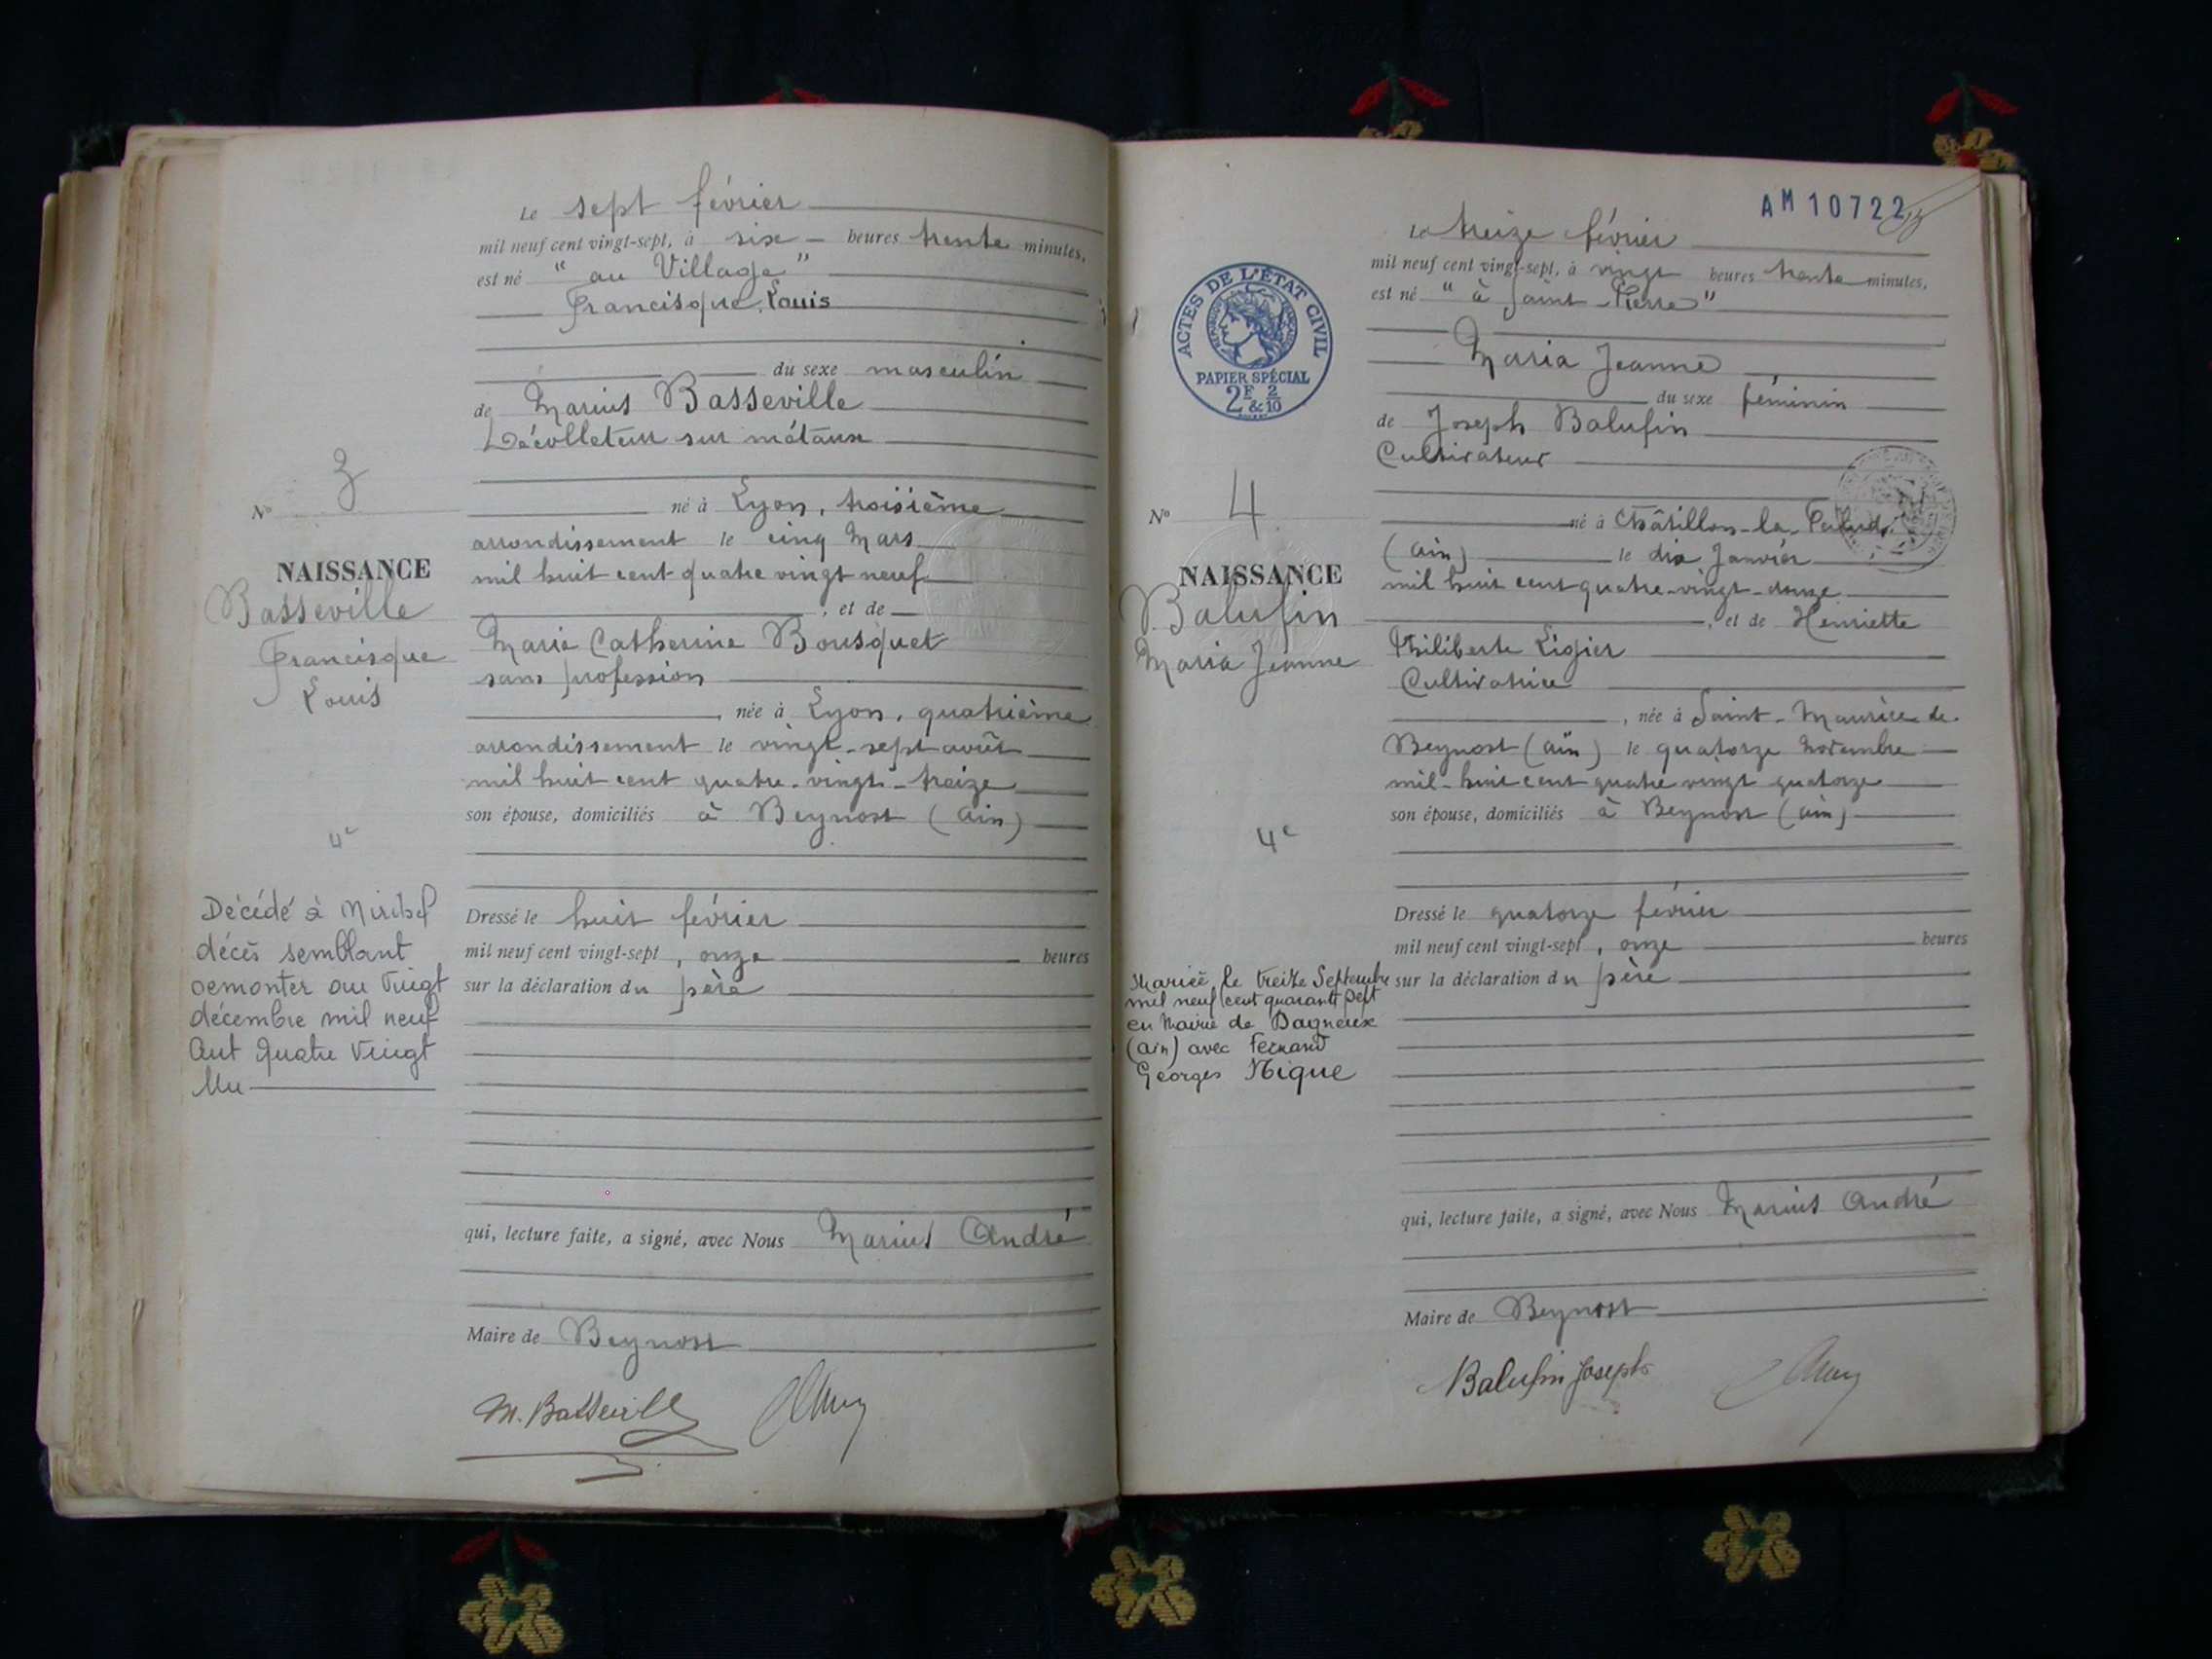 Le sept février
mil neuf cent vingt-sept, à six heures trente minutes,
est né "au Village"
Francisque Louis
du sexe masculin
de Marius Basseville
Décolleteur sur métaux
né à Lyon, troisième
arrondissement le cinq Mars
mil huit cent quatre vingt neuf
, et de
Marie Catherine Bousquet
sans profession
, née à Lyon, quatrième
arrondissement le vingt-sept août
mil huit cent quatre-vingt-treize
son épouse, domiciliés à Beynost (Ain)
Dressé le huit février
mil neuf cent vingt-sept, onze heures
sur la déclaration du père
qui, lecture faite, a signé, avec Nous Marius André
Maire de Beynost
M. Basseville
No 3
NAISSANCE
Basseville
Francisque
Louis
4e
Décédé à Miribel
décès semblant
remonter au Vingt
décembre mil neuf
Cent Quatre Vingt
Un
AM 10722
Le treize février
mil neuf cent vingt-sept, à vingt heures trente minutes,
est né "à Saint-Pierre"
Maria Jeanne
du sexe féminin
de Joseph Balufin
Cultivateur
né à Châtillon-la-Palud
(Ain) le dix Janvier
mil huit cent quatre-vingt-douze
, et de Henriette
Philiberte Ligier
Cultivatrice
, née à Saint-Maurice-de-
Beynost (Ain) le quatorze Novembre
mil-huit cent quatre vingt quatorze
son épouse, domiciliés à Beynost (Ain)
Dressé le quatorze février
mil neuf cent vingt-sept, onze heures
sur la déclaration du père
qui, lecture faite, a signé, avec Nous Marius André
Maire de Beynost
Balufin Joseph
ACTES DE L'ÉTAT CIVIL
RÉPUBLIQUE FRANÇAISE
PAPIER SPÉCIAL
2F & 2/10
No 4
NAISSANCE
Balufin
Maria Jeanne
4e
Mariée le treize Septembre
mil neuf cent quarante sept
en Mairie de Dagneux
(Ain) avec Fernand
Georges Nique